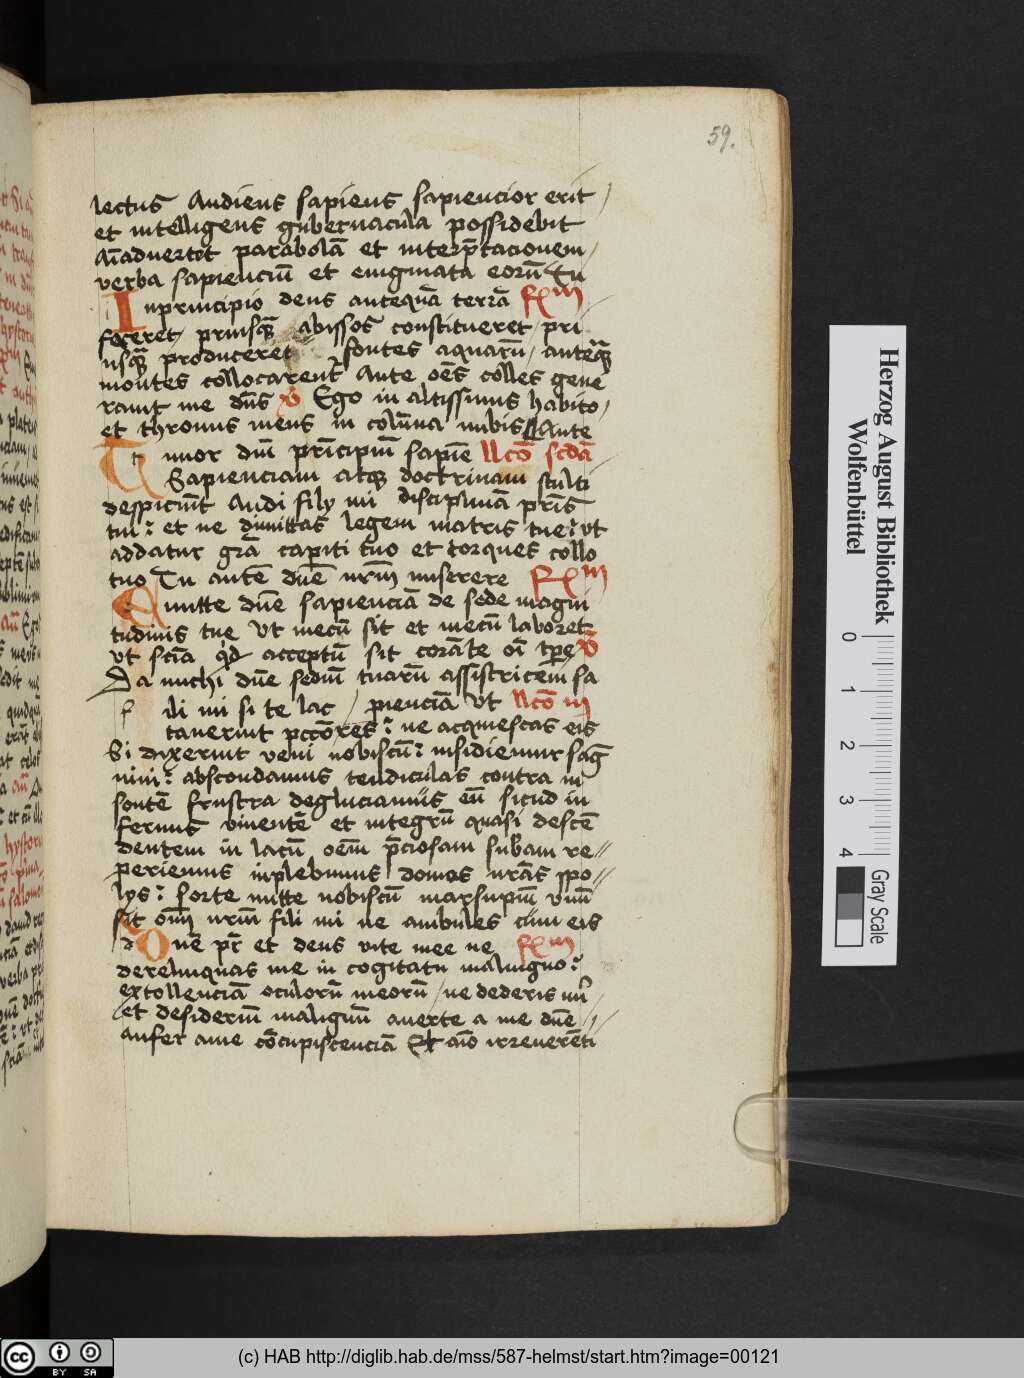 59.
lectus Audiens sapiens sapiencior erit /
et intelligens gubernacula possidebit
aīadvertet parabolā et interp̄tacionem /
verba sapienciū et enigmata eorū Tu
Inprincipio deus antequā terrā Rm
faceret / priusquā abissos constitueret / pri
usquā produceret fontes aquarū / antequā
montes collocarent̄ Ante oēs colles gene
ravit me dn̄s V Ego in altissimis habito /
et thronus meus in colūna nubis Ante
Timor dn̄i prīcipiū sapiē llcō scdā
Sapienciam atque doctrinam stulti
despiciūt Audi fily mi disciplinā prīs
tui : et ne dimittas legem matris tue : vt
addatur grā capiti tuo et torques collo
tuo Tu autē dn̄e nr̄m miserere Rm
Emitte dn̄e sapienciā de sede magni
tudinis tue Vt mecū sit et mecū laboret
vt sciā qd acceptū sit corā te oī tpe V
Da michi dn̄e sediū tuarū assistricem sa
Fili mi si te lac / pienciā Vt llcō iii
taverint pctōres : ne acquiescas eis
Si dixerint veni nobiscū : insidiemur saḡ
nini : abscondamus tendiculas contra in
sontē frustra degluciamus eū sicud in
fernus viventē et integrū quasi descē
dentem in lacū oēm p̄ciosam subam re//
periemus inplebimus domos nrās spo//
lys : sorte mitte nobiscū marsupiū vnū
sit oīm nrm fili mi ne ambules cum eis
Dn̄e pr̄ et deus vite mee ne Rm
derelinquas me in cogitatu maligno :
extollenciā oculorū meorū / ne dederis m̄
et desideriū malignū averte a me dn̄e //
aufer a me cōcupiscenciā Et aīo irreverēti
Herzog August Bibliothek
Wolfenbüttel
0 1 2 3 4
Gray Scale
cc BY SA
(c) HAB http://diglib.hab.de/mss/587-helmst/start.htm?image=00121